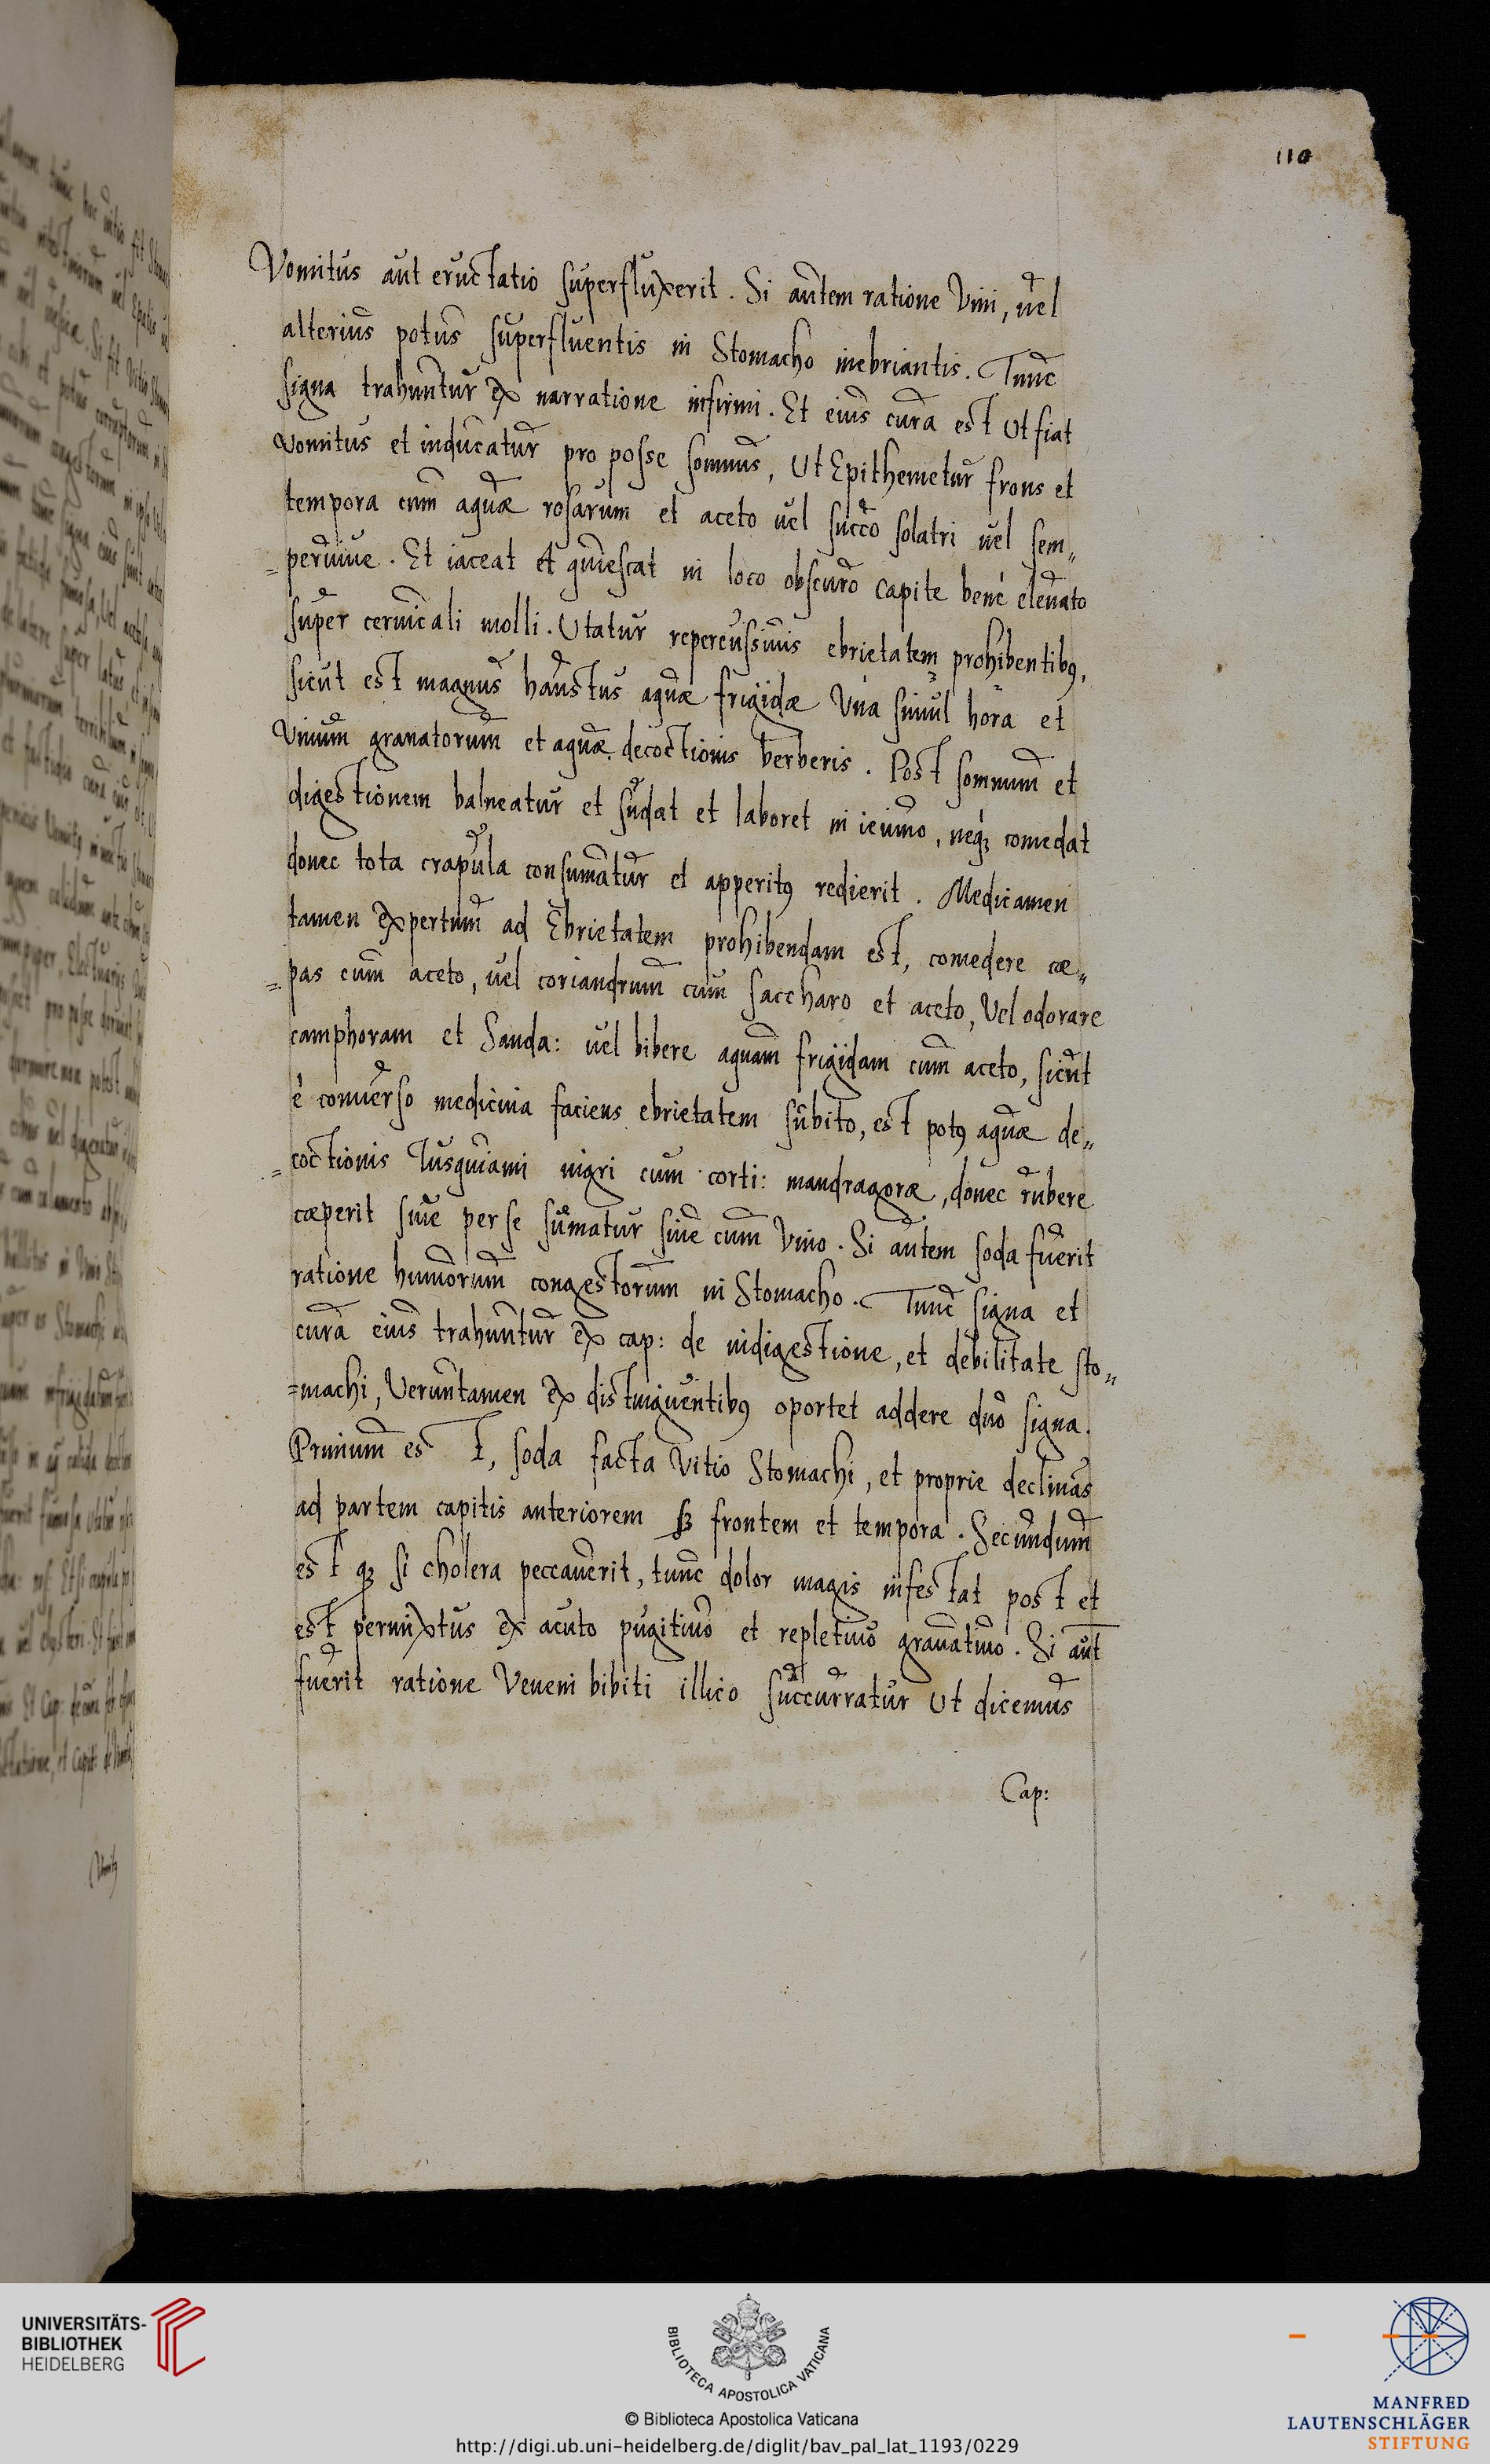 110
Vomitus aut eructatio superfluxerit. Si autem ratione Vini, uel
alterius potus superfluentis in Stomacho inebriantis. Tunc
signa trahuntur ex narratione infirmi. Et eius cura est Ut fiat
vomitus et inducatur pro posse somnus, Ut Epithemetur frons et
tempora cum aquæ rosarum et aceto uel succo solatri uel sem„
=peruiue. Et iaceat et quiescat in loco obscuro capite bené eleuato
super ceruicali molli. Utatur repercussiuis ebrietatem prohibentibꝰ,
sicut est magnus haustus aquæ frigidæ Una simul hora et
Vinum granatorum et aquæ decoctionis berberis. Post somnum et
digestionem balneatur et sudat et laboret in ieiuno, neqꝫ comedat
donec tota crapula consumatur et apperitꝰ redierit. Medicamen
tamen expertum ad Ebrietatem prohibendam est, comedere cæ„
=pas cum aceto, uel coriandrum cum saccharo et aceto, Vel odorare
camphoram et Sanda: uel bibere aquam frigidam cum aceto, sicut
è conuerso medicina faciens ebrietatem subito, est potꝰ aquæ de„
=coctionis Iusquiami nigri cum corti: mandragoræ, donec rubere
cæperit siue per se sumatur siue cum Vino. Si autem soda fuerit
ratione humorum congestorum in Stomacho. Tunc signa et
cura eius trahuntur ex cap: de indigestione, et debilitate sto„
=machi, Veruntamen ex distinguentibꝰ oportet addere duo signa.
Primum est, soda facta Vitio Stomachi, et proprie declinās
ad partem capitis anteriorem sꝫ frontem et tempora. Secundum
est qꝫ si cholera peccauerit, tunc dolor magis infestat post et
est permixtus ex acuto pugitiuo et repletiuo grauatiuo. Si aut̄
fuerit ratione Veneni bibiti illico succurratur Ut dicemus
Cap:
UNIVERSITÄTS-
BIBLIOTHEK
HEIDELBERG
BIBLIOTECA APOSTOLICA VATICANA
© Biblioteca Apostolica Vaticana
http://digi.ub.uni-heidelberg.de/diglit/bav_pal_lat_1193/0229
MANFRED
LAUTENSCHLÄGER
STIFTUNG